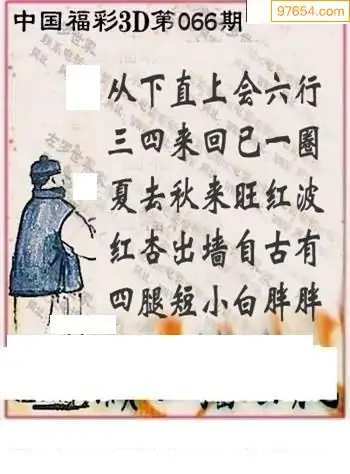 97654.com
中国福彩3D第066期
从下直上会六行
三四来回已一圈
夏去秋来旺红波
红杏出墙自古有
四腿短小白胖胖